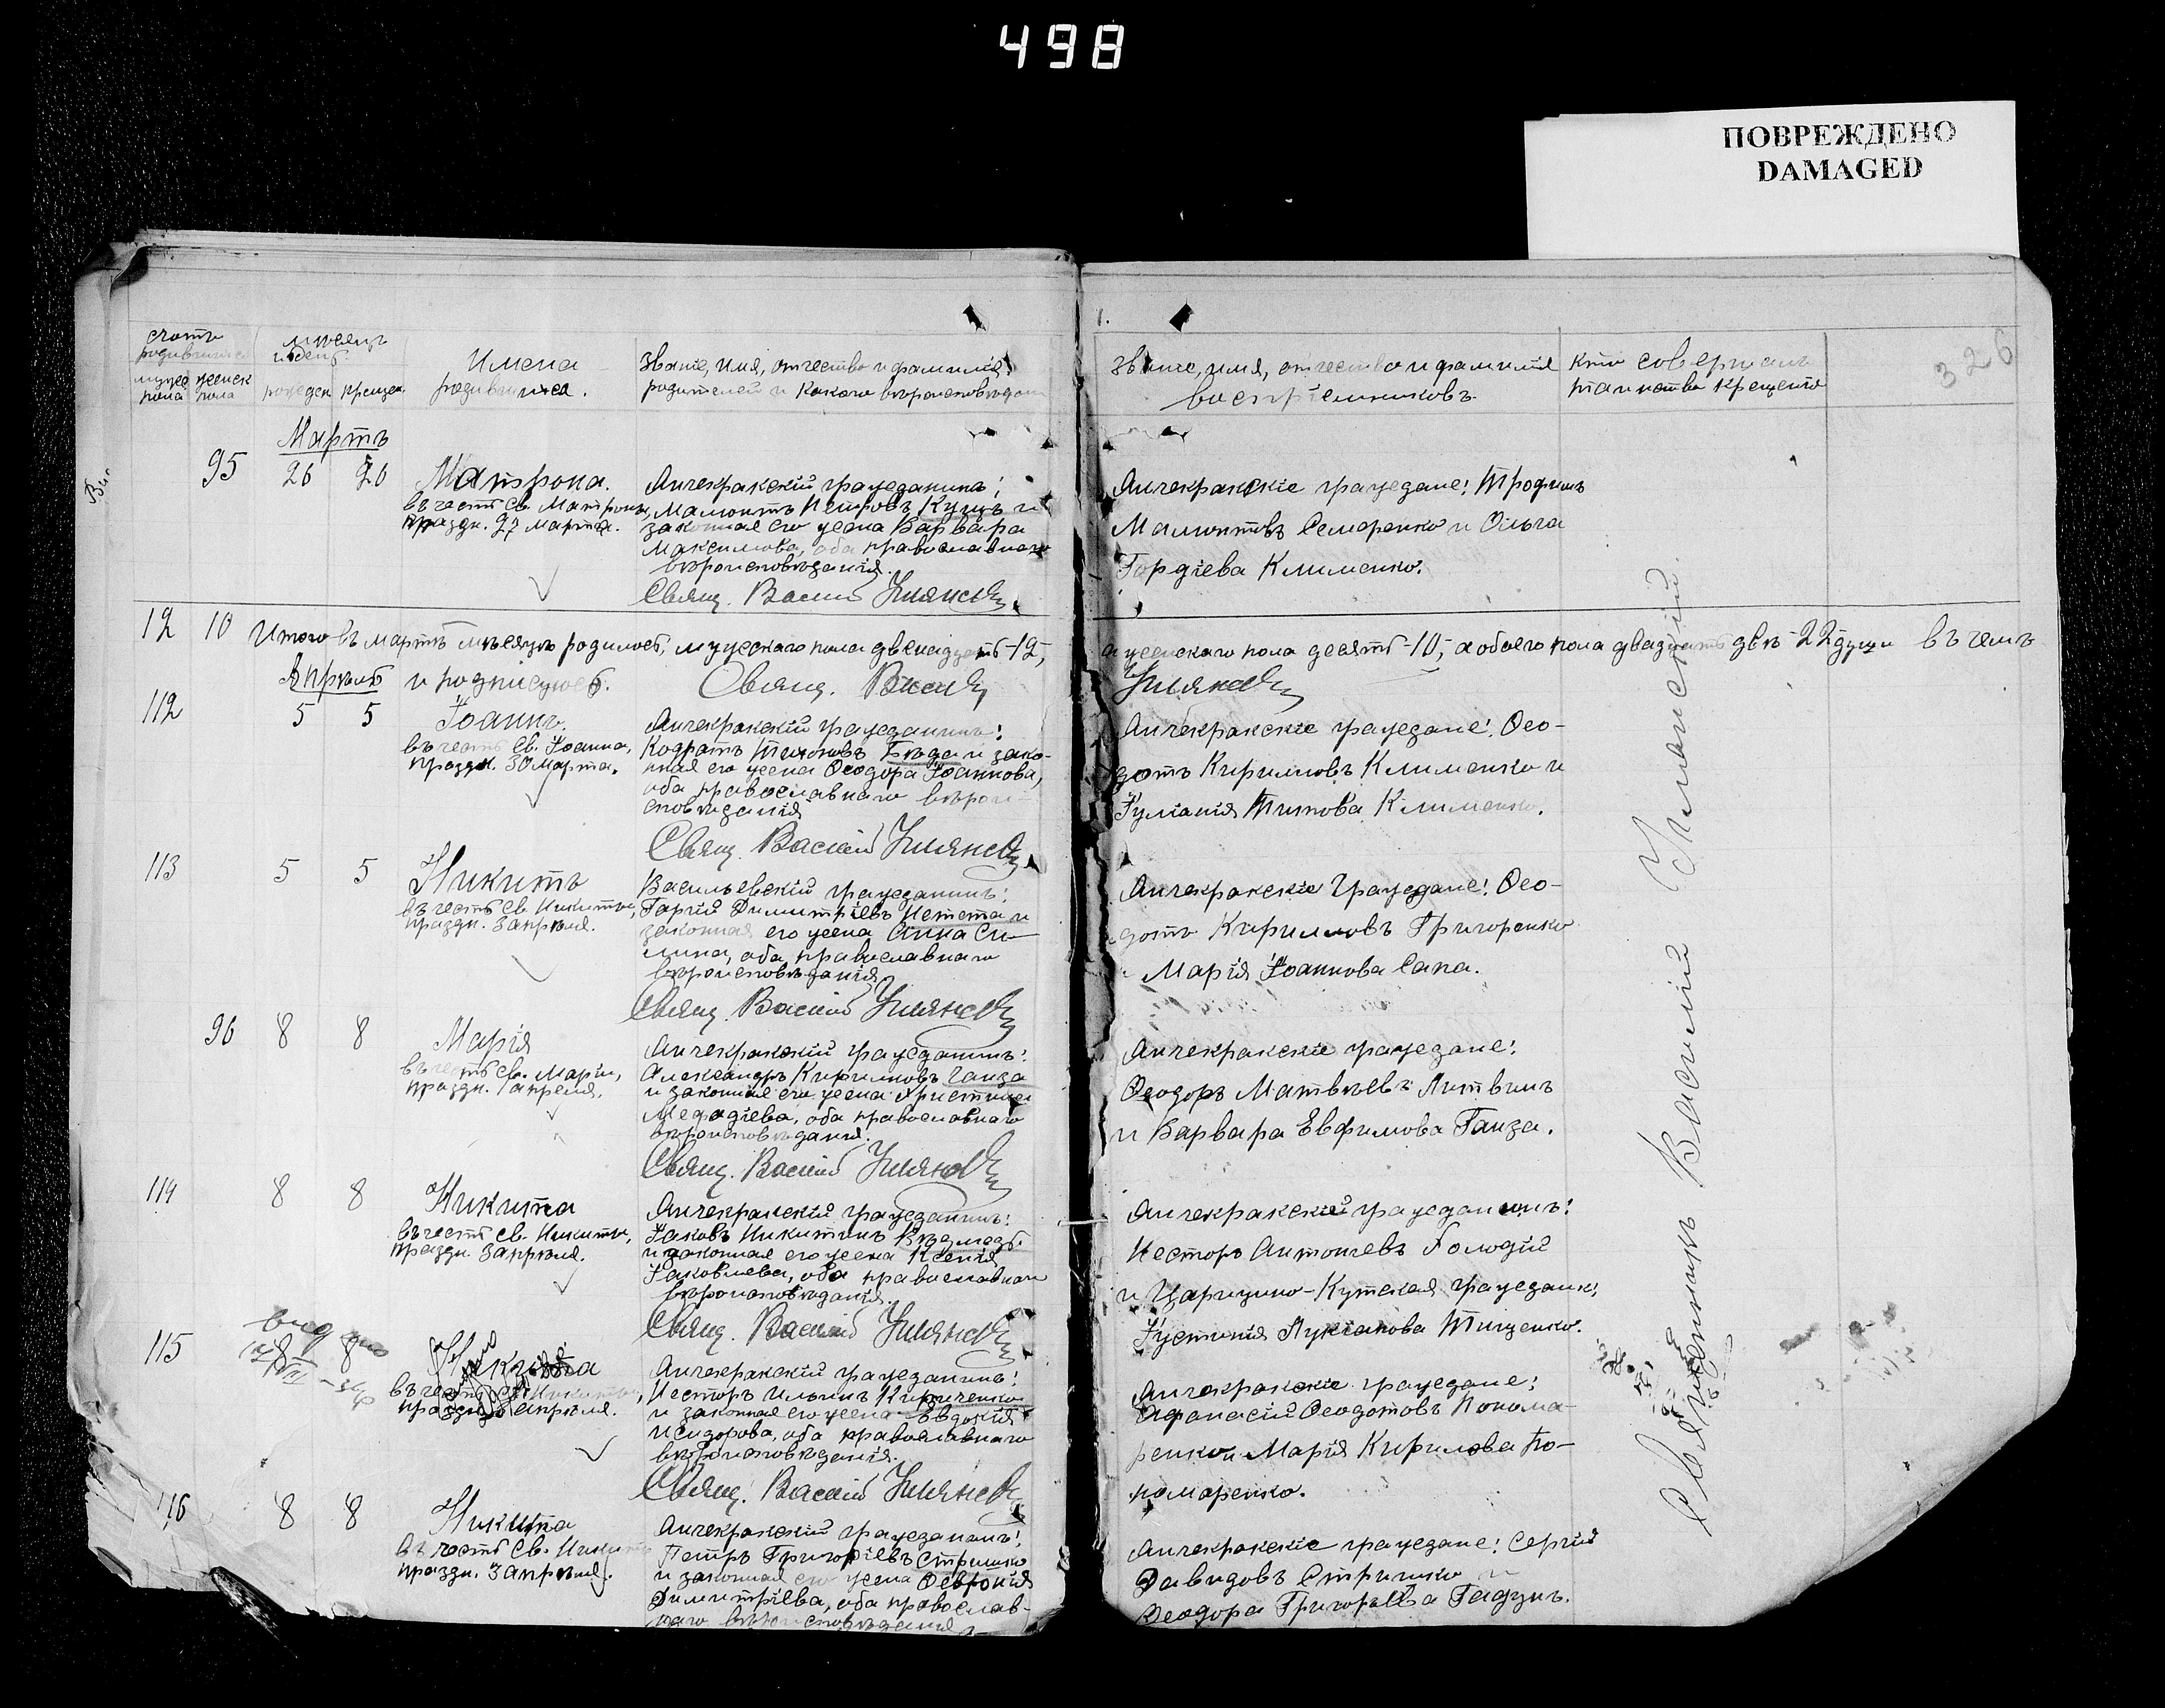 498
ПОВРЕЖДЕНО
DAMAGED
326
счетъ
родившихся
мужес пола
женск пола
мѣсяцъ
и день
рожден
крещен
Имена
родившихся.
Званіе, имя, отчество и фамилія
родителей и какого вѣроисповѣдан
Званіе, имя, отчество и фамилія
воспріемниковъ.
кто совершалъ
таинство крещенія
Мартъ
95 26 26
Матрона.
въ честь св. Матроны,
праздн. 27 марта.
Анчекракскій гражданинъ:
Мамонтъ Петровъ Куцъ и
законная его жена Варвара
Максимова, оба православнаго
вѣроисповѣданія.
Свящ. Васил
Анчекракскіе граждане: Трофимъ
Мамонтовъ Семеренко и Ольга
Гордіева Клименко.
12 10 Итого въ мартѣ мѣсяцѣ родилось, мужескаго пола двенадцать -12,
а женскаго пола десять -10, а обоего пола двадцать двѣ -22 души въ чемъ
и подписуюсь. Свящ. Васил
Апрѣль
112 5 5
Іоаннъ.
въ честь св. Іоанна,
праздн. 30 марта.
Анчекракскій гражданинъ:
Кодратъ Тихоновъ Бѣда и зако-
нная его жена Ѳеодора Іоаннова,
оба православнаго вѣрои-
сповѣданія
Свящ. Василій
Анчекракскіе граждане: Ѳео-
дотъ Кирилловъ Клименко и
Іуліанія Титова Клименко.
113 5 5
Никита
въ честь св. Никиты,
праздн. 3 апрѣля.
Васильевскій гражданинъ:
Гаргій Димитріевъ Нетета и
законная его жена Анна Си-
лина, оба православнаго
вѣроисповѣданія
Свящ. Василій
Анчекракскіе граждане: Ѳео-
дотъ Кирилловъ Григоренко
Марія Іоаннова Сапа.
96 8 8
Марія
въ честь св. Маріи,
праздн. 1 апреля.
Анчекракскій гражданинъ:
Александръ Кирилловъ Ганза
и законная его жена Христина
Мефодіева, оба православнаго
вѣроисповѣданія.
Свящ. Василій
Анчекракскіе граждане:
Ѳеодоръ Матвѣевъ Литвинъ
и Варвара Евфимова Ганза.
114 8 8
Никита
въ честь св. Никиты,
праздн. 3 апрѣля.
Анчекракскій гражданинъ:
Іаковъ Никитинъ Вѣдмедь
и законная его жена Ксенія
Іаковлева, оба православнаго
вѣроисповѣданія.
Свящ. Василій
Анчекракскій гражданинъ:
Несторъ Антоніевъ Голодій
и Царицино-Кутская гражданка
Іустинія Лукіанова Тищенко.
115 8 8
Никита
въ честь св. Никиты,
праздн. 3 апрѣля.
Анчекракскій гражданинъ:
Несторъ Ильинъ Кириченко
и законная его жена Евдокія
Исидорова, оба православнаго
вѣроисповѣданія.
Свящ. Василій
Анчекракскіе граждане:
Афанасій Ѳеодотовъ Понома-
ренко и Марія Кирилова По-
номаренко.
116 8 8
Никита
въ честь св. Никиты
праздн. 3 апрѣля.
Анчекракскій гражданинъ:
Петръ Григоріевъ Стришко
и законная его жена Ѳевронія
Димитріева, оба православ-
наго вѣроисповѣданія
Анчекракскіе граждане: Сергій
Давидовъ Стришко и
Ѳеодора Григорьева Гадзунъ.
Священникъ Василій